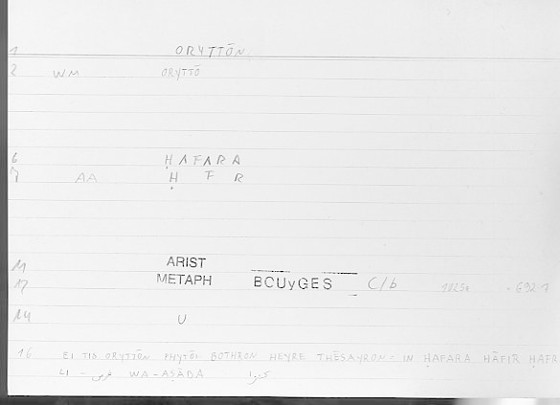 1 ORYTTŌN
2 WM ORYTTŌ
6 ḤAFARA
7 AA Ḥ F R
11 ARIST
12 METAPH BOUyGES C/b 1025a 692.1
14 U
16 EI TIS ORYTTŌN PHYTŌI BOTHRON HEYRE THĒSAYRON: IN ḤAFARA ḤĀFIR ḤAFR
WA-AṢĀBA